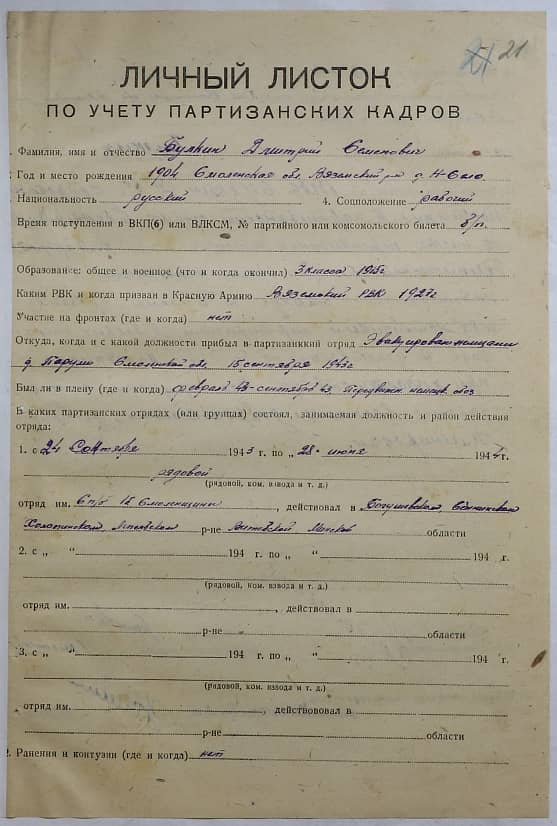 21
ЛИЧНЫЙ ЛИСТОК
ПО УЧЕТУ ПАРТИЗАНСКИХ КАДРОВ
Фамилия, имя и отчество Булкин Дмитрий Семенович
Год и место рождения 1904 Смоленская обл. Вяземский р-н д. Н-Село
Национальность русский 4. Соцположение рабочий
Время поступления в ВКП(б) или ВЛКСМ, № партийного или комсомольского билета б/п.
Образование: общее и военное (что и когда окончил) 3 класса 1915г
Каким РВК и когда призван в Красную Армию Вяземский РВК 1927г
Участие на фронтах (где и когда) нет
Откуда, когда и с какой должности прибыл в партизанский отряд Эвакуирован немцами
д. Смоленской обл. 15 сентября 1943г
Был ли в плену (где и когда) февраль 43-сентябрь 43. обоз
В каких партизанских отрядах (или группах) состоял, занимаемая должность и район действия
отряда:
1. с 24 Сентября 1943 г. по „ 28 " июня 1944 г.
рядовой
(рядовой, ком. взвода и т. д.)
отряд им. 6 п/б Смоленщины, действовал в Богушевском, Сенненском
Холопиничском, р-не Витебской Минской области
2. с „ " 194 г. по „ " 194 г.
(рядовой, ком. взвода и т. д.)
отряд им. , действовал в
р-не области
3. с „ " 194 г. по „ " 194 г.
(рядовой, ком. взвода и т. д.)
отряд им. , действововал в
р-не области
Ранения и контузии (где и когда) нет